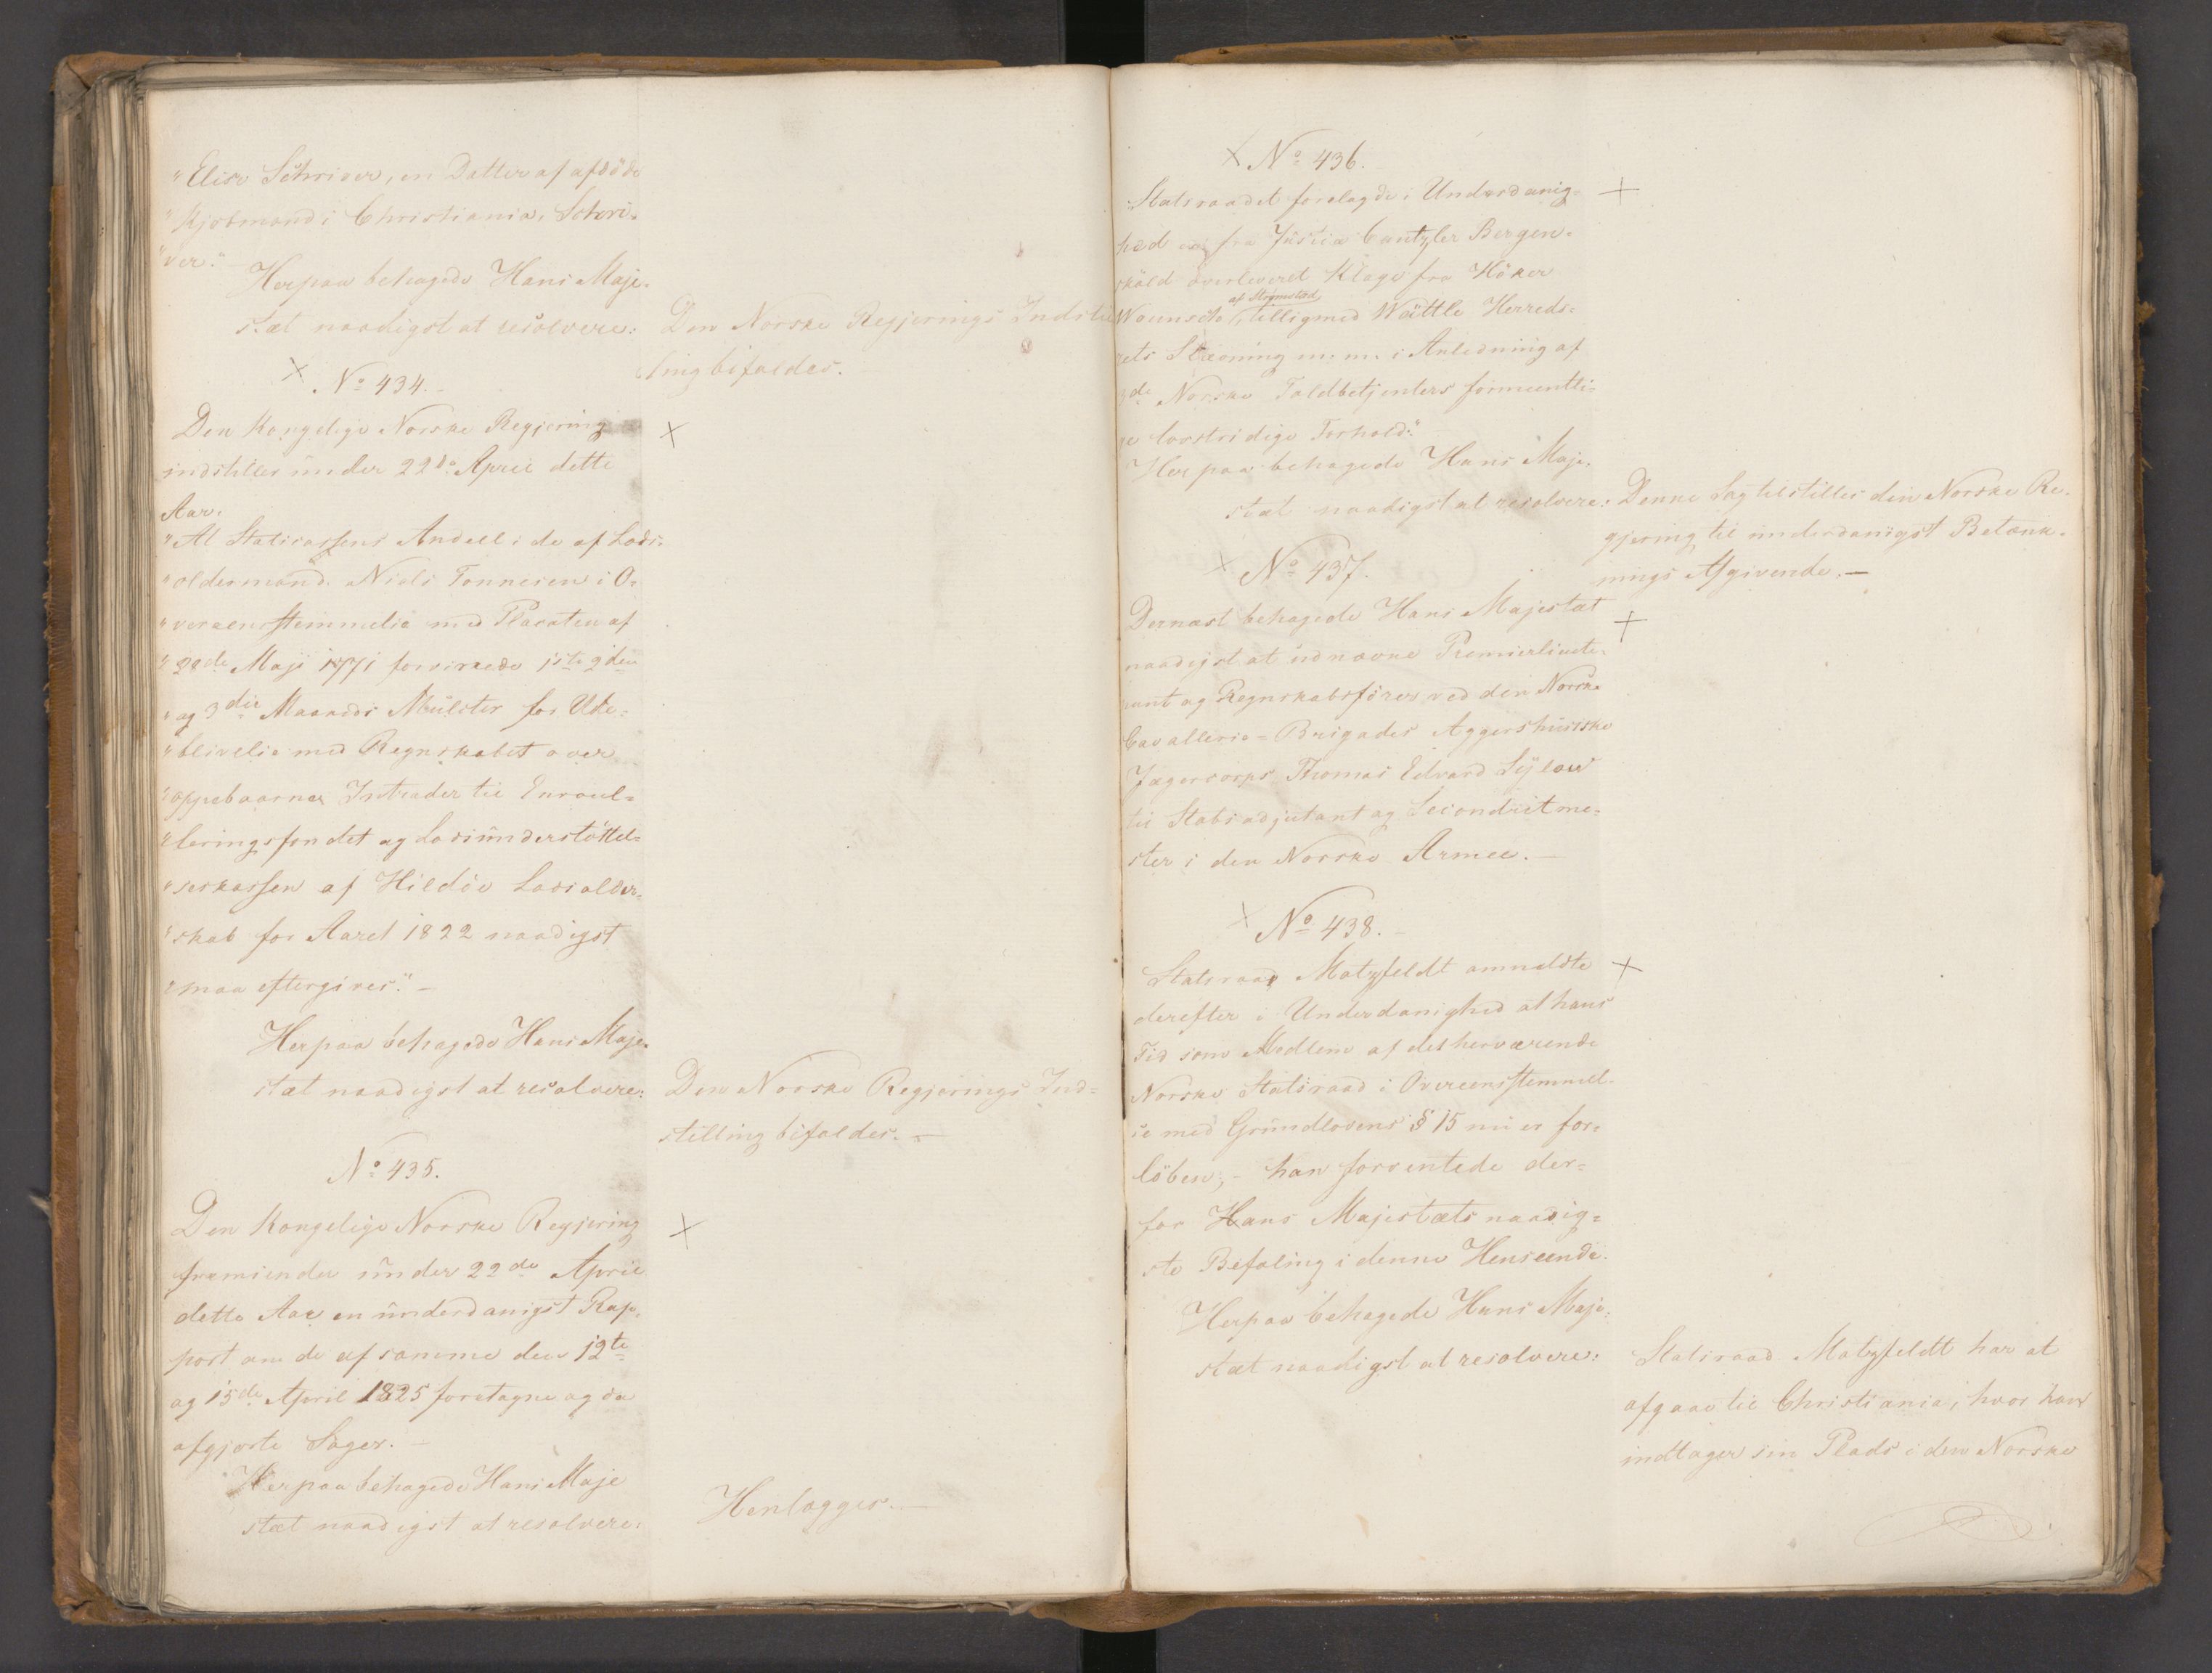 "Elise Schriver, en Datter af afdöde
"Kjöbmand i Christiania, Schri-
"ver."
Herpaa behagede Hans Maje-
stæt naadigst at resolvere:
Den Norske Regjerings Indstil
ling bifaldes.
No 434.
Den Kongelige Norske Regjering
indstiller under 22de April dette
Aar.
"At Statscassens Andeel i de af Lods-
"oldermand Niels Tonnesen i O-
"vereensstemmelse med Placaten af
"28de Maji 1771 forvirkede 1ste 2den
"og 3die Maaneds Mulcter for Ude-
"blivelse med Regnskabet over
"oppebaarne Intrader til Enroul-
"leringsfondet og Lodsunderstöttel-
"seskassen af Hildöe Lodsolder-
"skab for Aaret 1822 naadigst
"maa eftergives."
Herpaa behagede Hans Maje-
stæt naadigst at resolvere:
Den Norske Regjerings Ind-
stilling bifaldes.
No 435.
Den Kongelige Norske Regjering
fremsender under 22de April
dette Aar en underdanigst Rap-
port om de af samme den 12te
og 15de April 1825 foretagne og da
afgjorte Sager.
Herpaa behagede Hans Maje
stæt naadigst at resolvere:
Henlægges.
No 436.
Statsraadet forelagde i Underdanig-
hed en fra Justice Cantzler Bergen-
sköld overleveret Klage fra Höker
af Strømstad
Wounsch, tilligmed Wättle Herreds-
rets Stævning m. m. i Anledning af
de Norske Toldbetjenters formeentli-
ge lovstridige Forhold."
Herpaa behagede Hans Maje-
stæt naadigst at resolvere:
Denne Sag tilstilles den Norske Re-
gjering til underdanigst Betænk-
nings Afgivende.
No 437.
Dernæst behagede Hans Majestæt
naadigst at udnævne Premierlieute-
nant og Regnskabsförer ved den Norske
Cavallerie-Brigades Aggershusiske
Jægercorps Thomas Edvard Sylow
til Stabsadjutant og Secondritme-
ster i den Norske Armee.
No 438.
Statsraad Motzfeldt anmeldte
derefter i Underdanighed at hans
Tid som Medlem af det herværende
Norske Statsraad i Overeensstemmel-
se med Grundlovens § 15 nu er for-
löben; - han forventede der-
for Hans Majestæts naadig-
ste Befaling i denne Henseende.
Herpaa behagede Hans Maje-
stæt naadigst at resolvere:
Statsraad Motzfeldt har at
afgaae til Christiania, hvor han
indtager sin Plads i den Norske